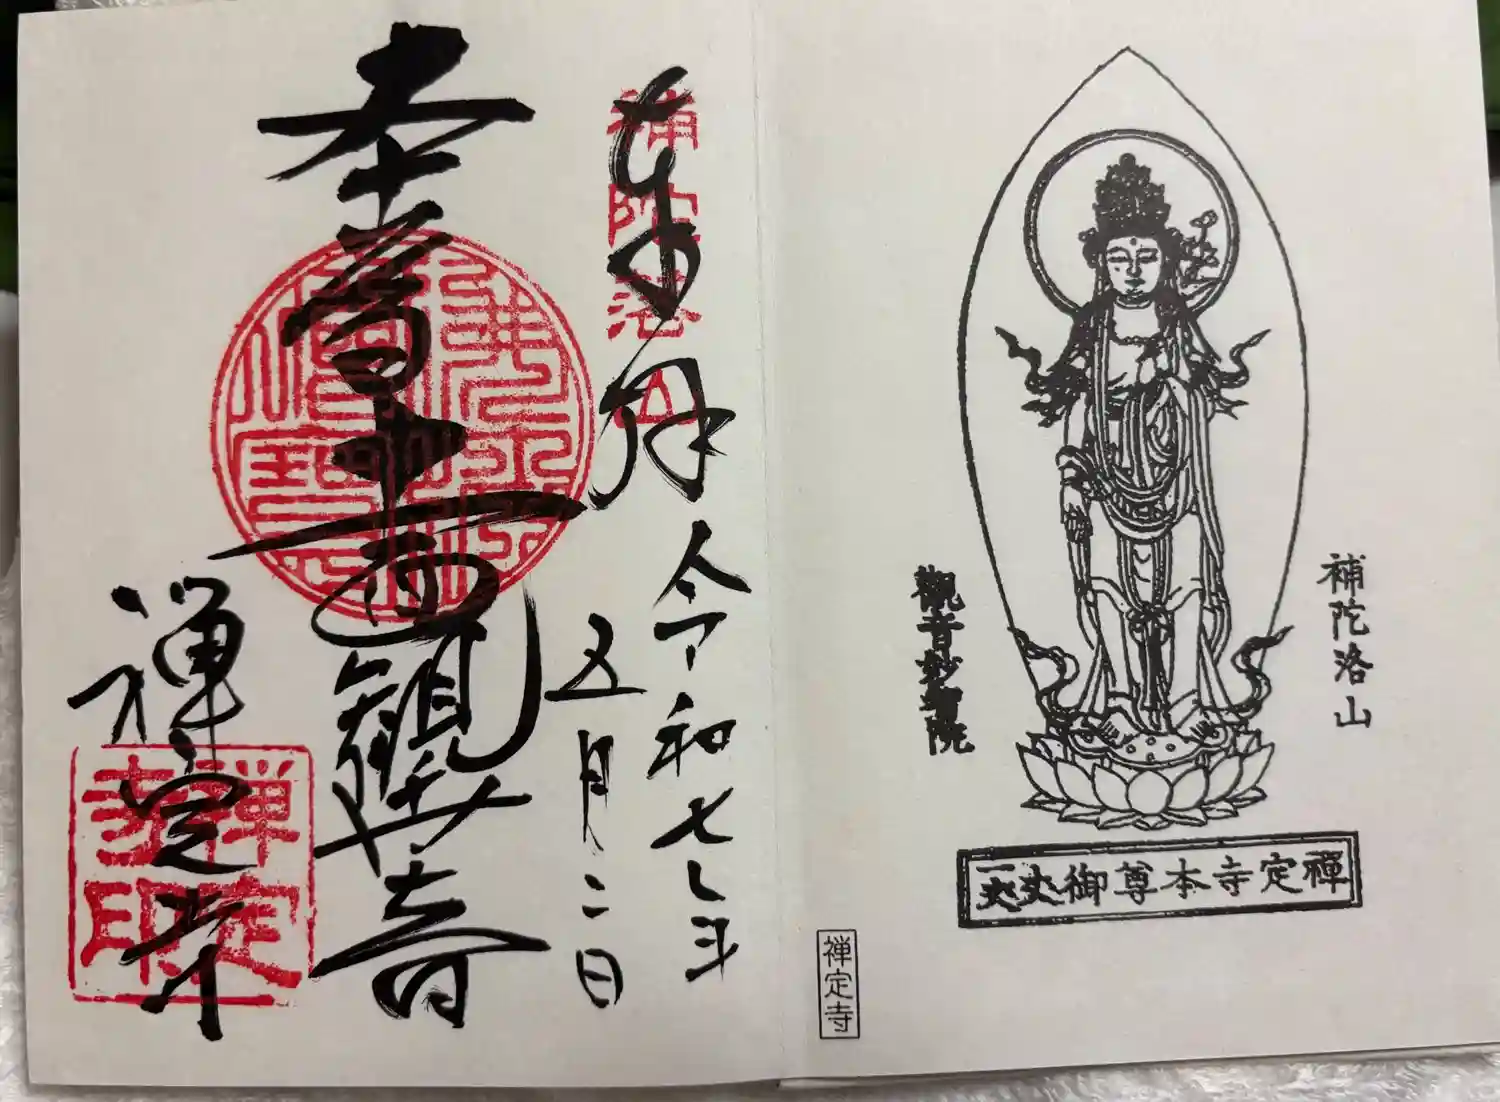 補陀洛山
觀音妙智院
禪定寺本尊御丈
禅定寺
奉拝
補陀洛山
令和七年
五月二日
本尊十一面觀世音
禅定寺
禅定寺印